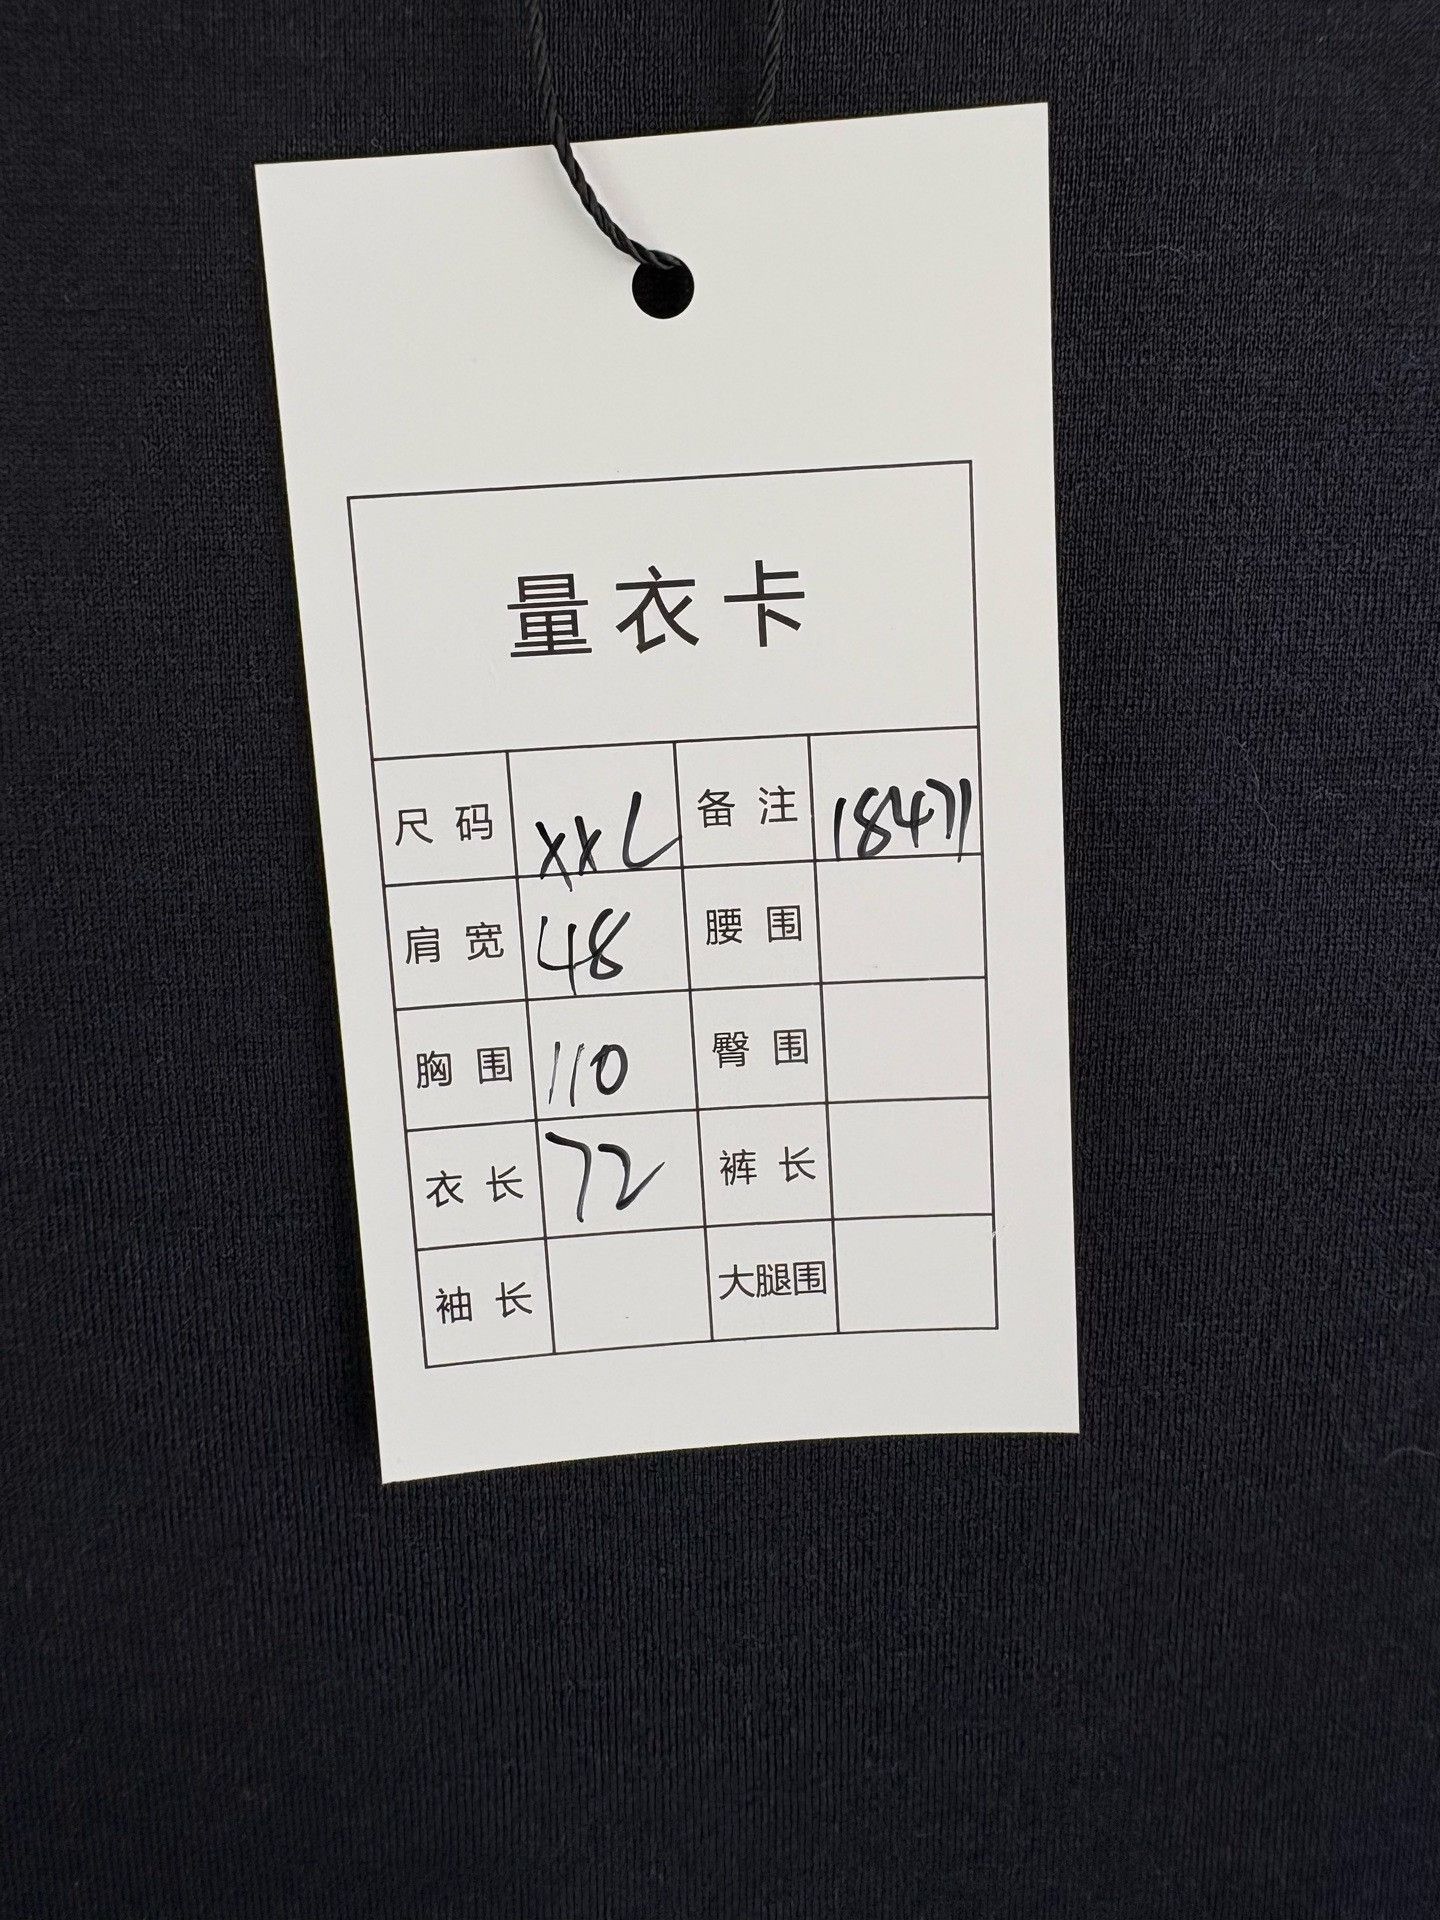 量衣卡
尺码 XXL 备注 18471
肩宽 48 腰围
胸围 110 臀围
衣长 72 裤长
袖长 大腿围